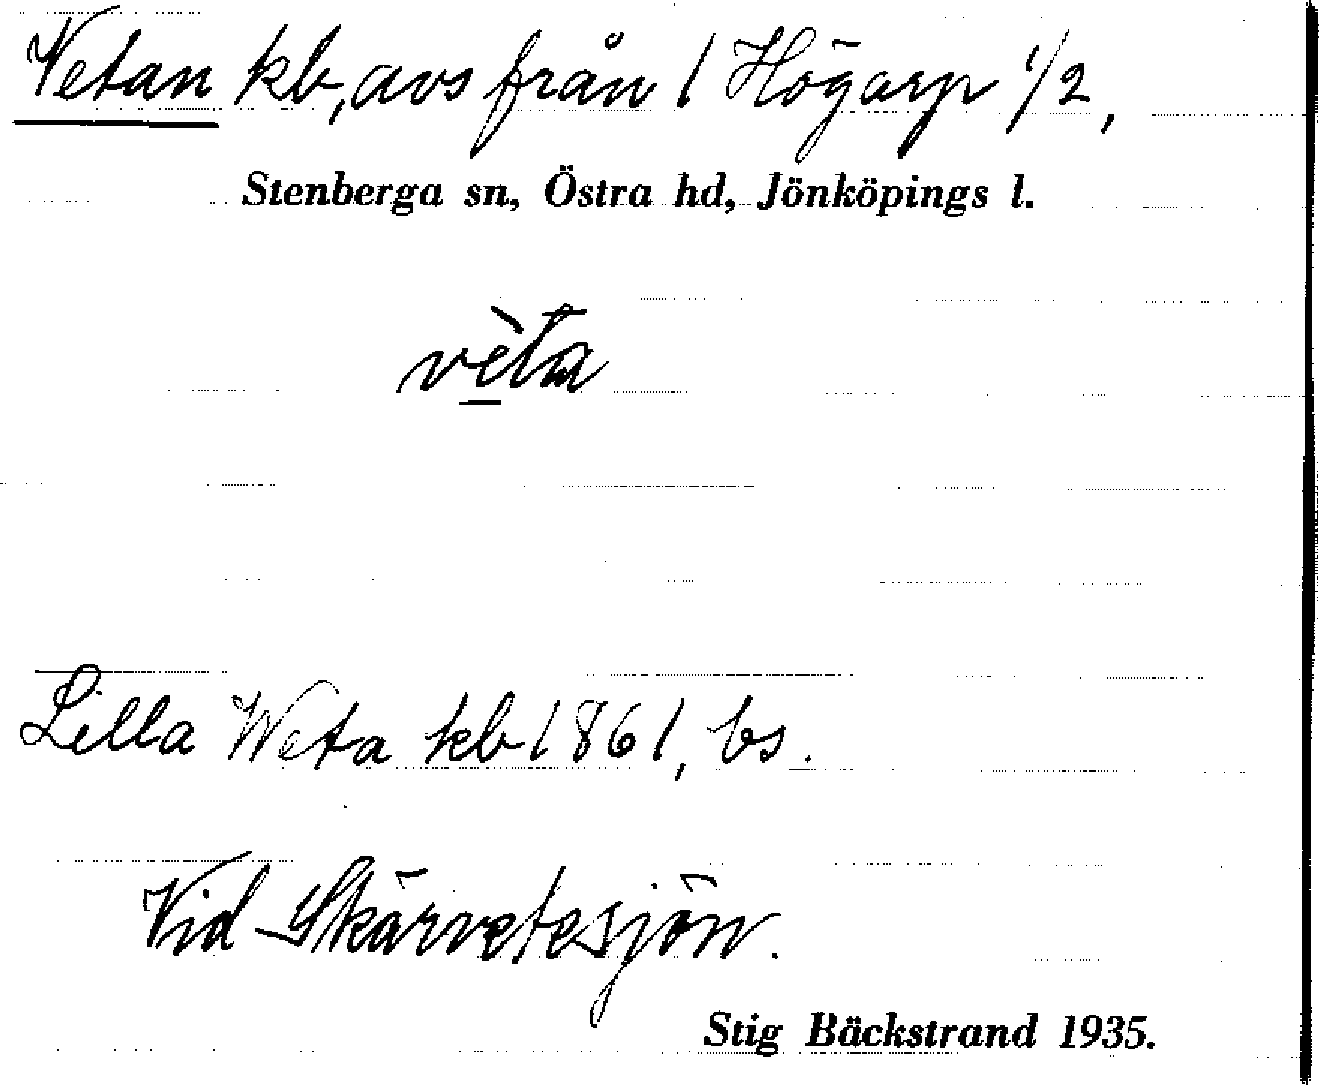 Vetan kb, avs från 1 Högarp 1/2,
Stenberga sn, Östra hd, Jönköpings l.
vèta
Lilla Weta kb 1861, bs.
Vid Skärvetesjön.
Stig Bäckstrand 1935.